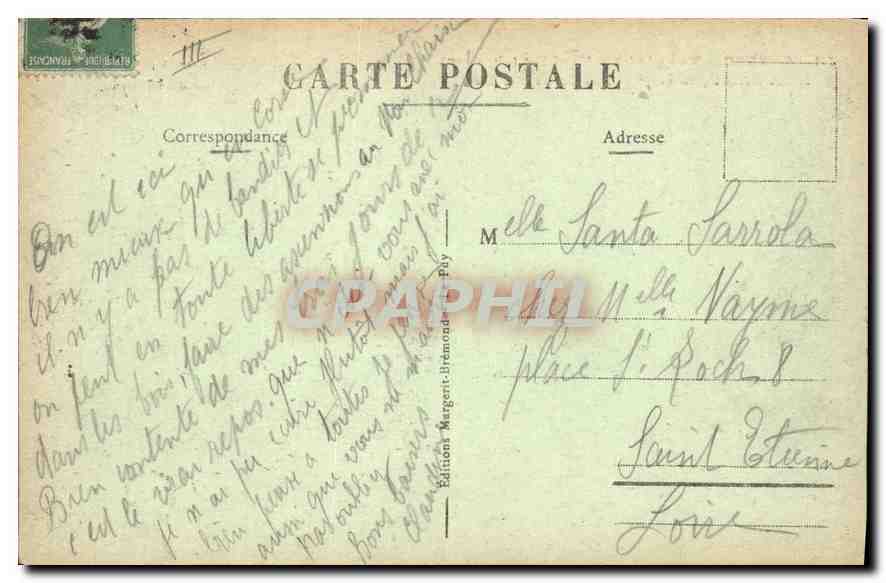 REPUBLIQUE FRANÇAISE
III
CARTE POSTALE
Correspondance
Adresse
On est ici
bien mieux qu'en Corse
il n'y a pas de bandits et
on peut en toute liberté se promener
dans les bois, faire des ascensions au
Bien contente de mes jours de
c'est le vrai repos. que n'
je n'ai pu écrire plutôt mais j'ai
bien pensé à toutes
ainsi que vous ne m'avez
pas oubliée
bons baisers
Claudine
Editions Margerit-Brémond - Le Puy
CPAPHIL
Melle Santa Sarrola
chez Melle Nayme
place St Roch 8
Saint Etienne
Loire